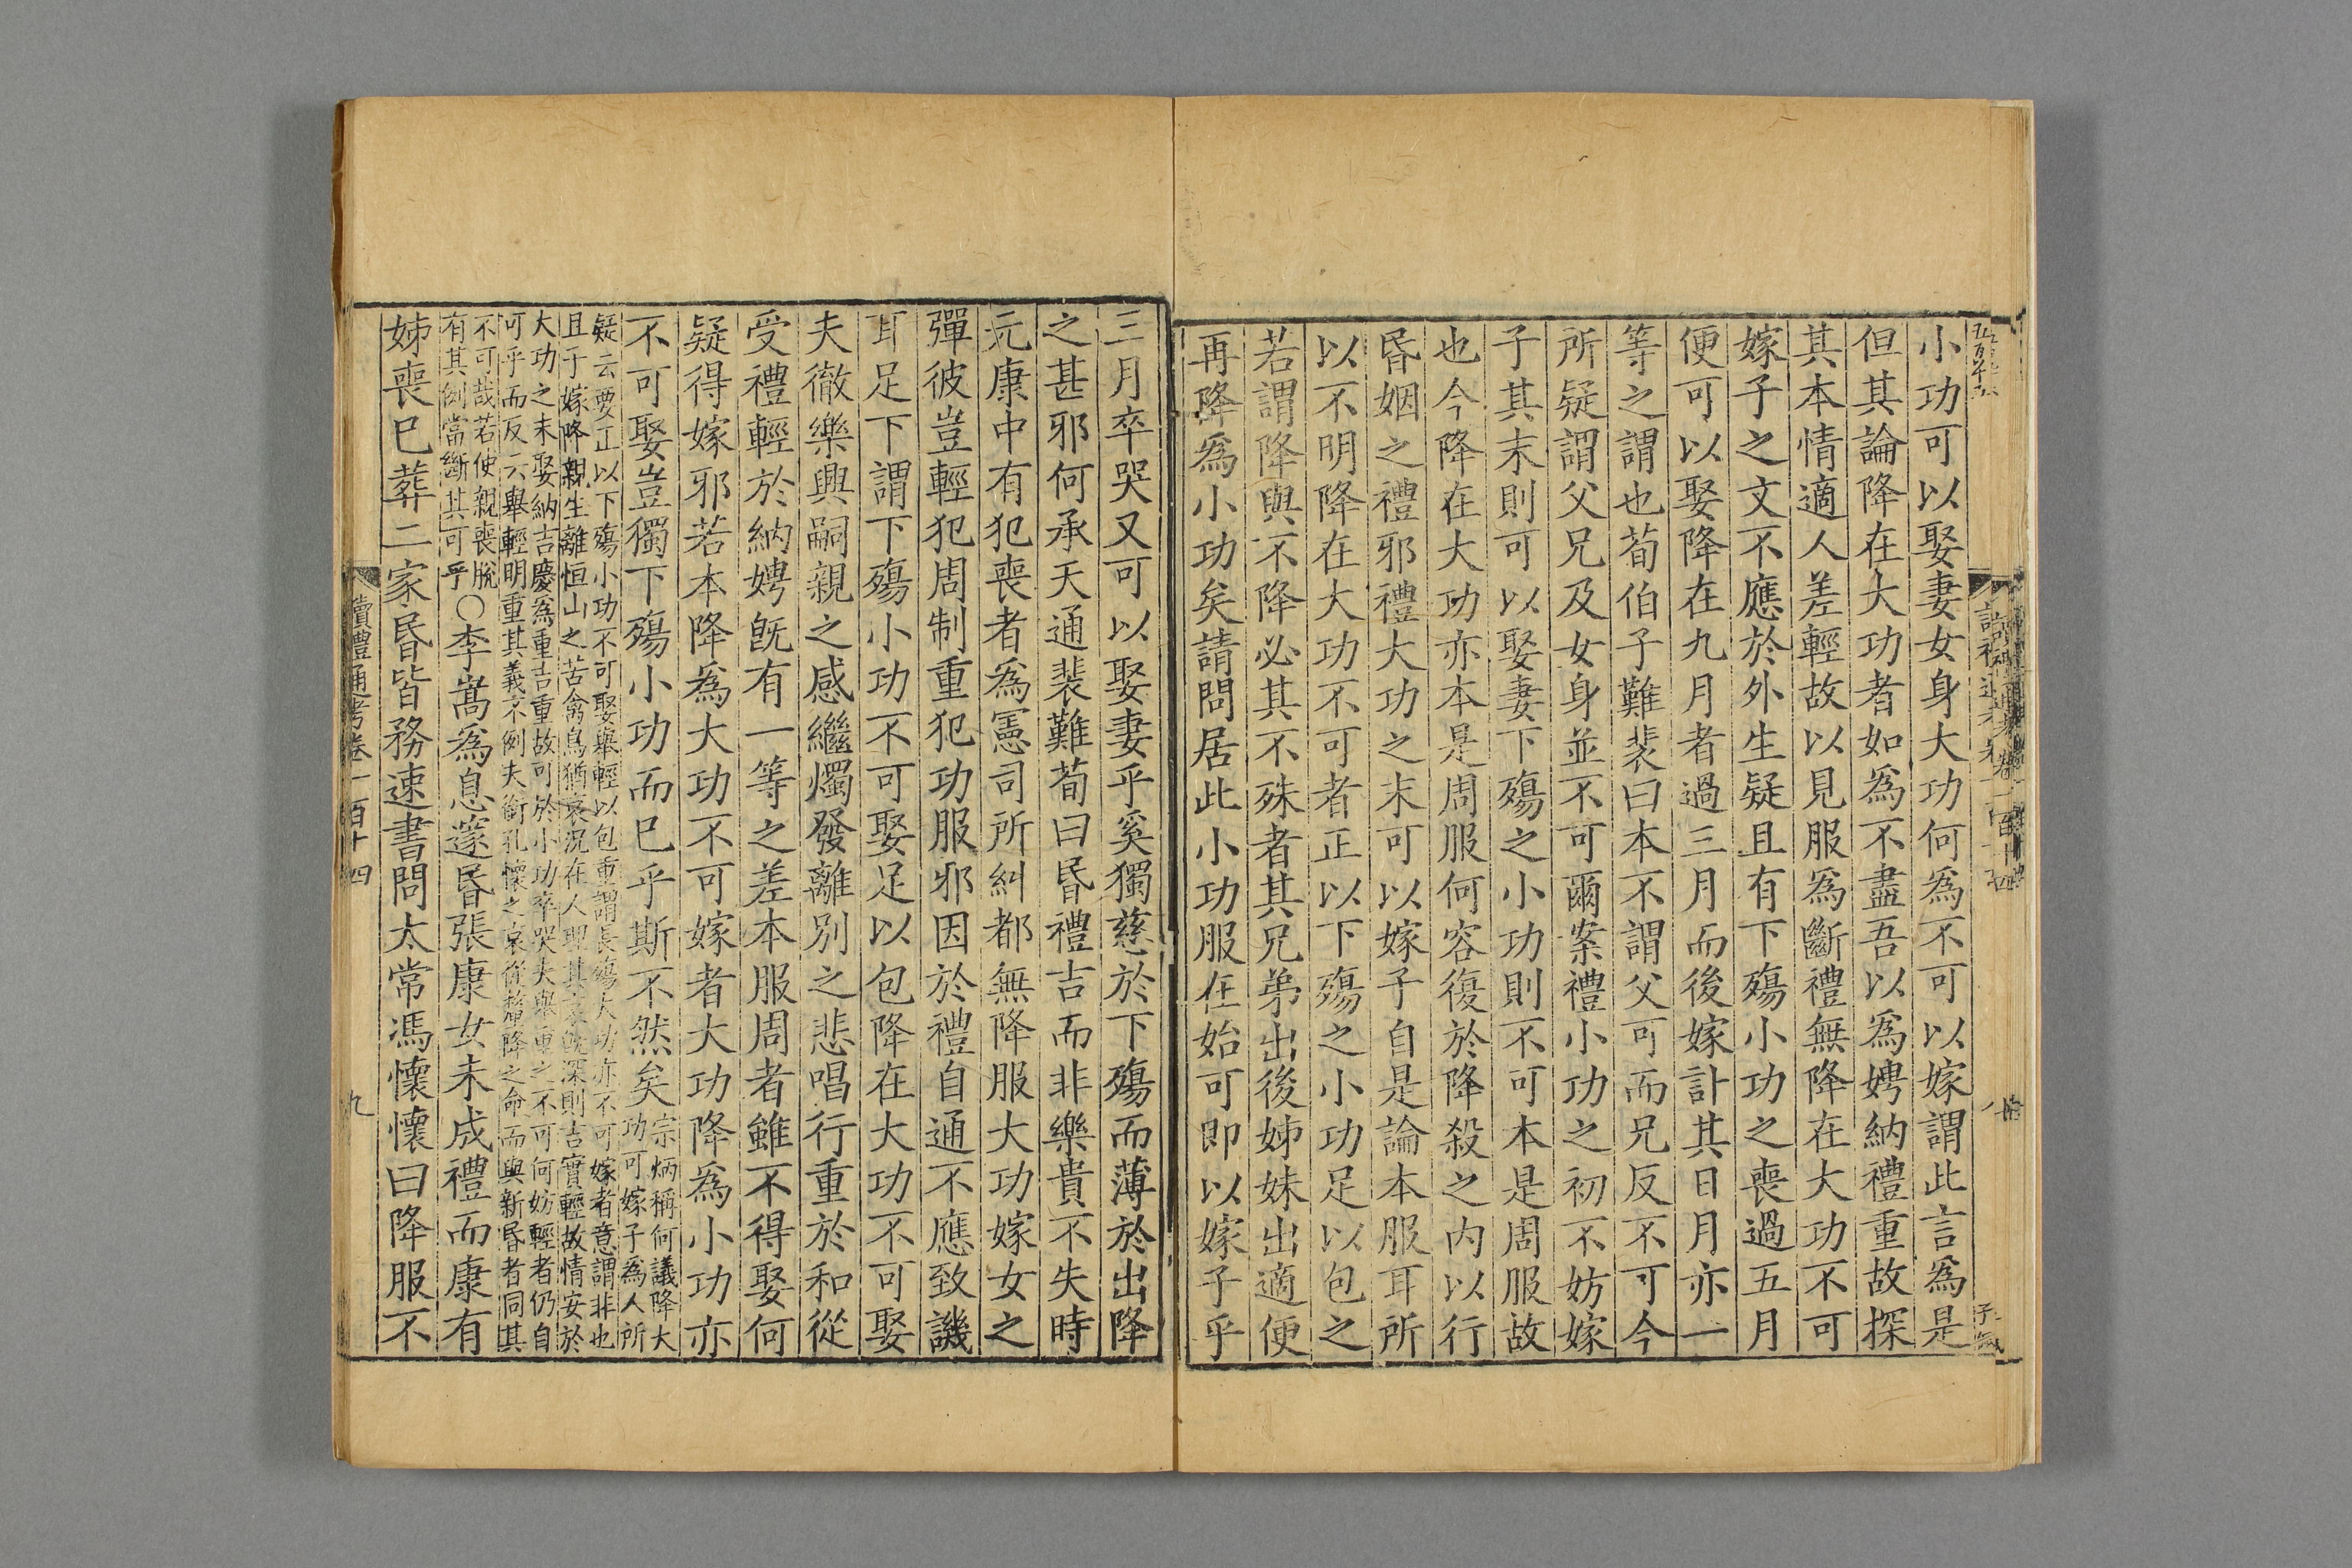 小功可以娶妻女身大功何為不可以嫁謂此言為是
但其論降在大功者如為不盡吾以為娉納禮重故探
其本情適人差輕故以見服為斷禮無降在大功不可
嫁子之文不應於外生疑且有下殤小功之喪過五月
便可以娶降在九月者過三月而後嫁計其日月亦一
等之謂也荀伯子難裴曰本不謂父可而兄反不可今
所疑謂父兄及女身並不可爾案禮小功之初不妨嫁
子其末則可以娶妻下殤之小功則不可本是周服故
也今降在大功亦本是周服何容復於降殺之內以行
昏姻之禮邪禮大功之末可以嫁子自是論本服耳所
以不明降在大功不可者正以下殤之小功足以包之
若謂降與不降必其不殊者其兄弟出後姊妹出適便
再降為小功矣請問居此小功服在始可即以嫁子乎
三月卒哭又可以娶妻乎奚獨慈於下殤而薄於出降
之甚邪何承天通裴難荀曰昏禮吉而非樂貴不失時
元康中有犯喪者為憲司所糾都無降服大功嫁女之
彈彼豈輕犯周制重犯功服邪因於禮自通不應致譏
耳足下謂下殤小功不可娶足以包降在大功不可娶
夫徹樂興嗣親之感繼燭發離別之悲唱行重於和從
受禮輕於納娉既有一等之差本服周者雖不得娶何
疑得嫁邪若本降為大功不可嫁者大功降為小功亦
不可娶豈獨下殤小功而已乎斯不然矣
宗炳稱何議降大
功可嫁子為人所
疑云要正以下殤小功不可娶舉輕以包重謂長殤大功亦不可嫁者意謂非也
且子嫁降親生離恒山之苦禽鳥猶哀況在人理其哀既深則吉實輕故情安於
大功之末娶納吉慶為重吉重故可於小功卒哭夫舉重之不可何妨輕者仍自
可乎而反云舉輕明重其義不例夫銜孔懷之哀從蹔降之命而與新昏者同其
不可哉若使親喪脫
有其例當斷其可乎
〇李嵩為息邃昏張康女未成禮而康有
姊喪已葬二家昏皆務速書問太常馮懷懷曰降服不
讀禮通考卷一百十四
九